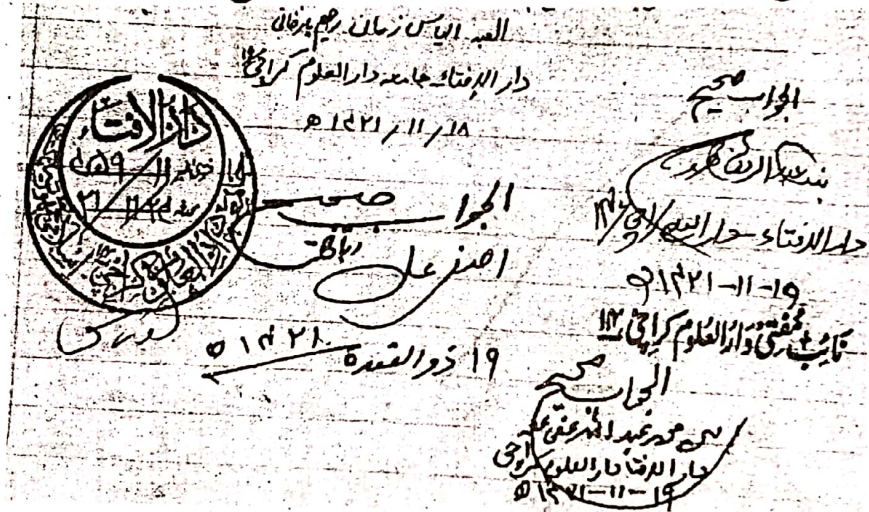 العبد الیاس زمان رحیم یارخانی
دار الافتاء جامعہ دارالعلوم کراچی
۱۸ / ۱۱ / ۱۴۲۱ ھ
دار الافتاء
الجواب صحیح
اصغر علی ربانی
۱۹ ذوالقعدۃ ۱۴۲۱ ھ
الجواب صحیح
بندہ عبدالرؤف سکھروی
دار الافتاء دارالعلوم کراچی
۱۹-۱۱-۱۴۲۱ ھ
نائب مفتی دارالعلوم کراچی ۱۴
الجواب صحیح
محمد عبد المنان عفی عنہ
دار الافتاء دارالعلوم کراچی
۱۹-۱۱-۱۴۲۱ ھ